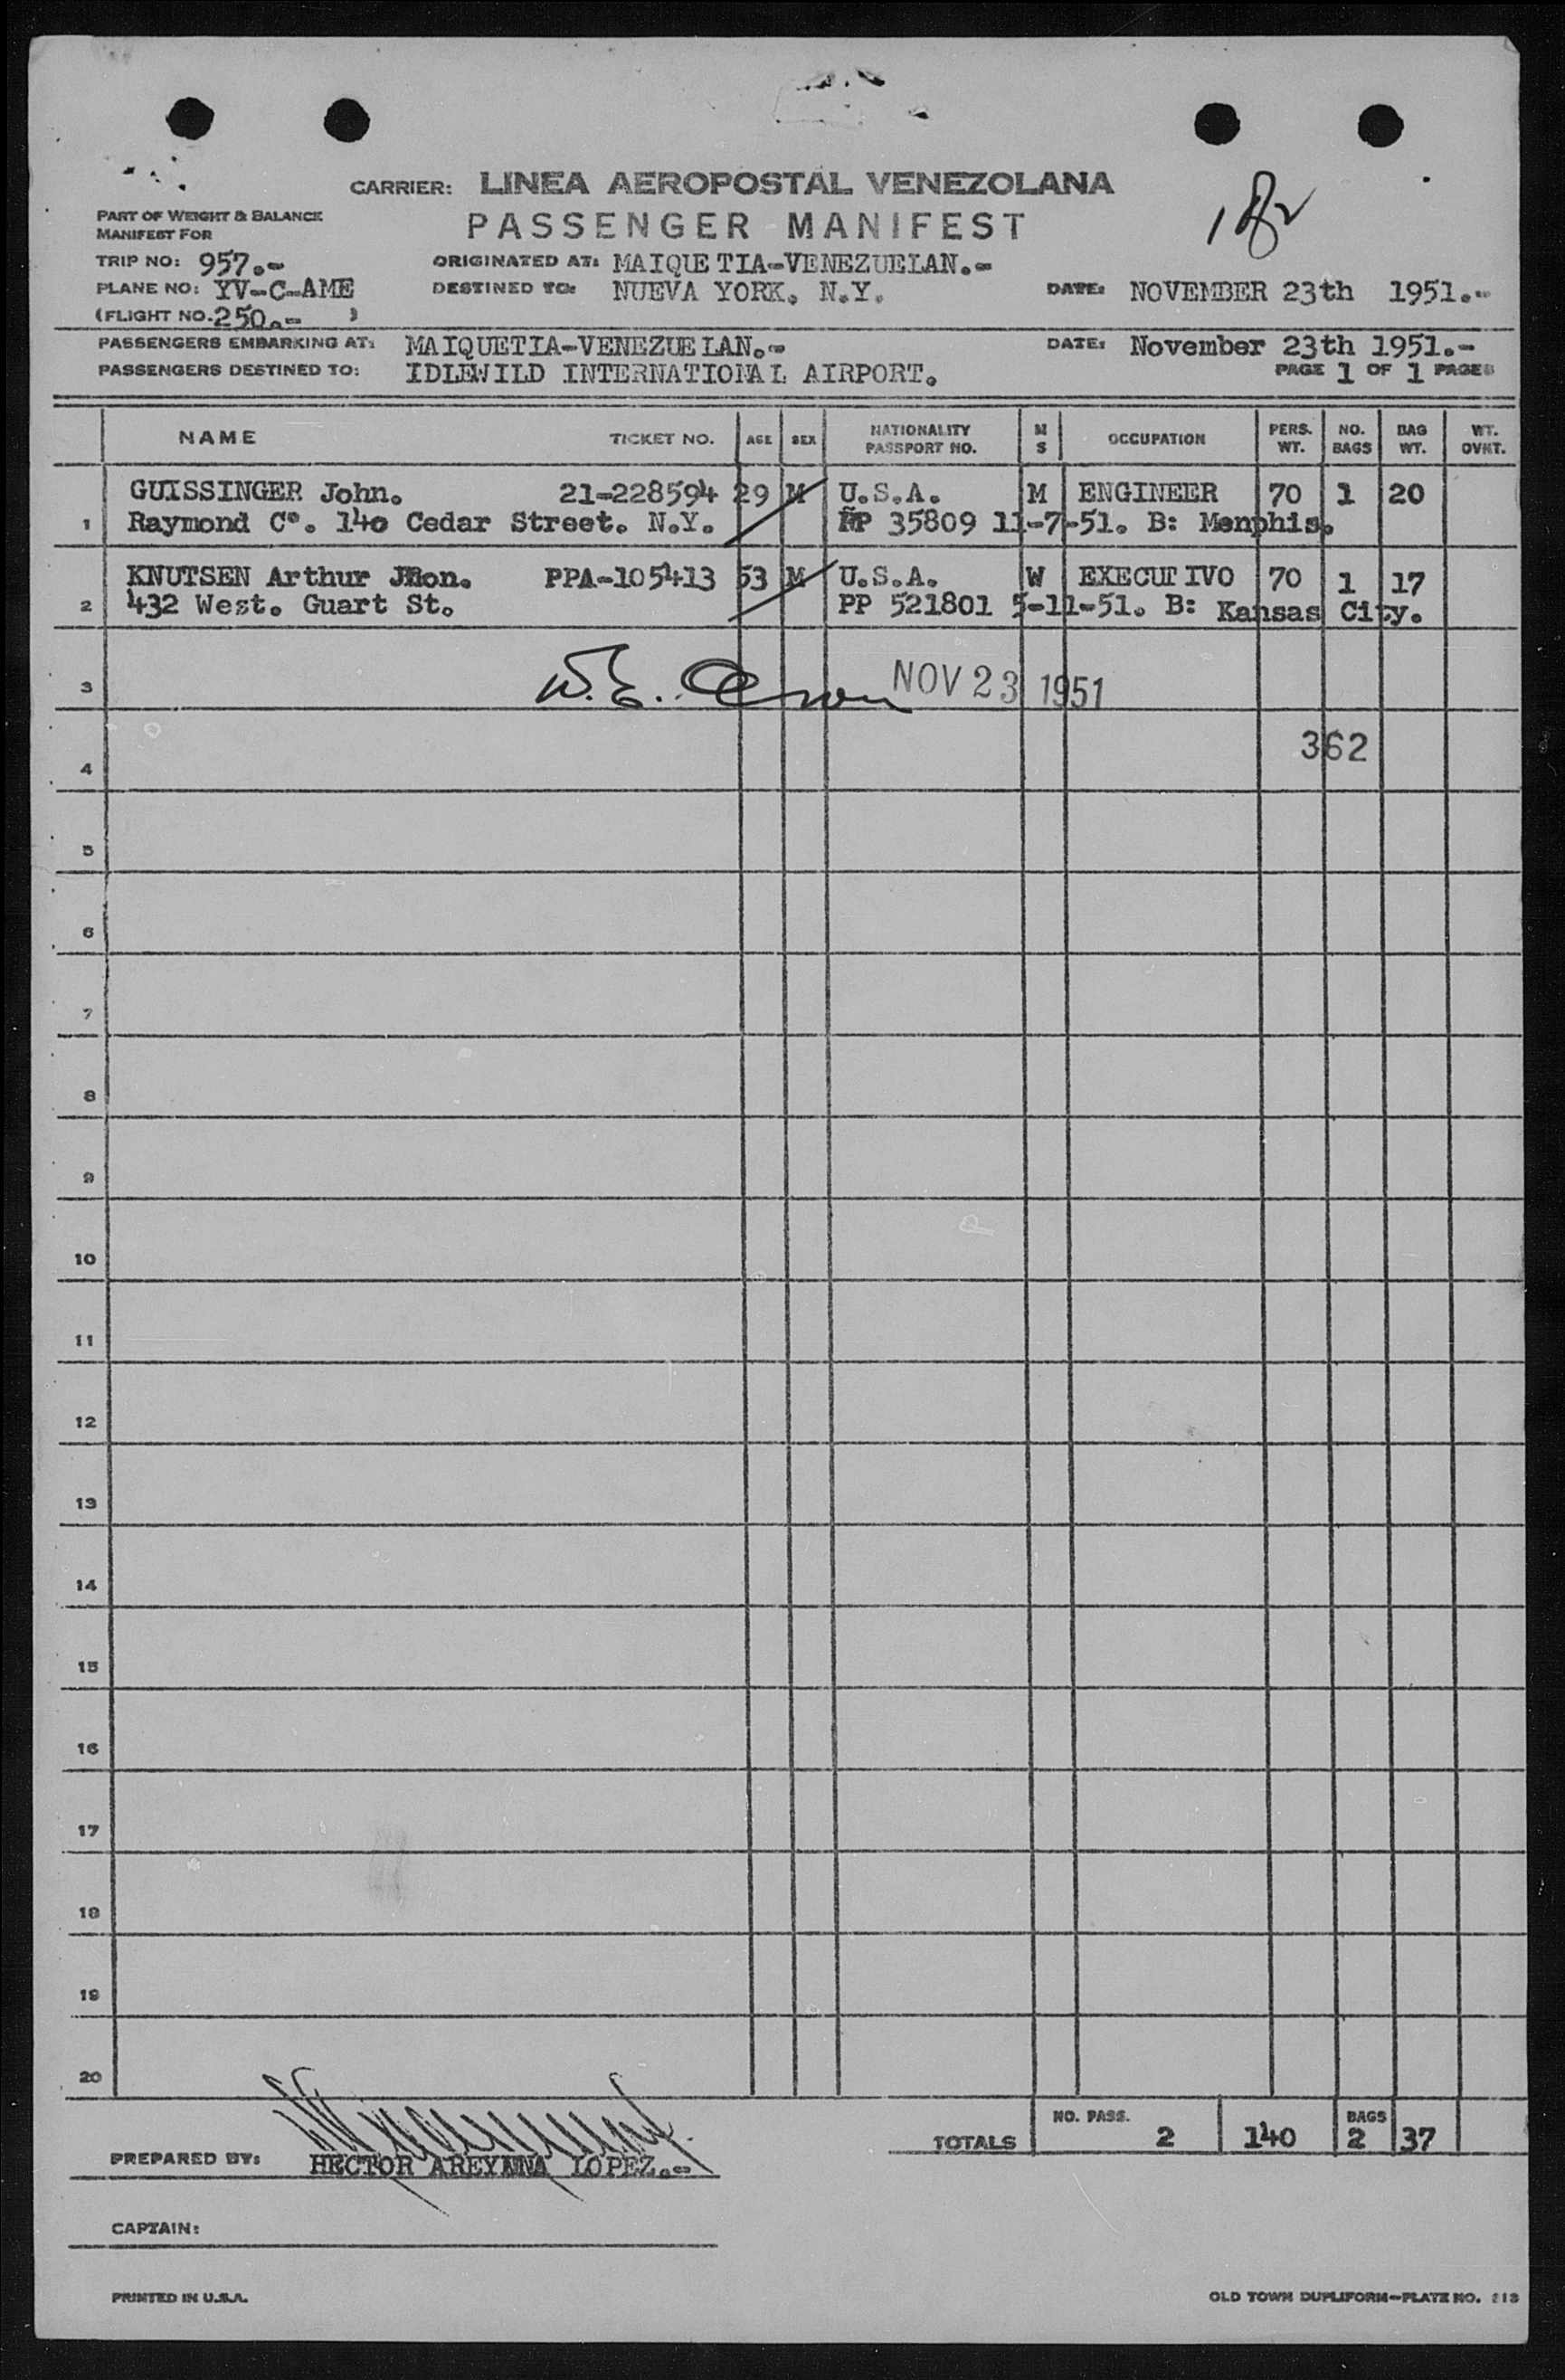 CARRIER: LINEA AEROPOSTAL VENEZOLANA
PASSENGER MANIFEST
182
PART OF WEIGHT & BALANCE
MANIFEST FOR
TRIP NO: 957.-
PLANE NO: YV-C-AME
(FLIGHT NO. 250.- )
ORIGINATED AT: MAIQUETIA-VENEZUELAN.-
DESTINED TO: NUEVA YORK, N.Y.
DATE: NOVEMBER 23th 1951.-
PASSENGERS EMBARKING AT: MAIQUETIA-VENEZUELAN.-
DATE: November 23th 1951.-
PASSENGERS DESTINED TO: IDLEWILD INTERNATIONAL AIRPORT.
PAGE 1 OF 1 PAGES
NAME TICKET NO. AGE SEX NATIONALITY PASSPORT NO. M S OCCUPATION PERS. WT. NO. BAGS BAG WT. WT. OVHT.
GUISSINGER John. 21-228594 29 M U.S.A. M ENGINEER 70 1 20
1 Raymond Cº. 140 Cedar Street. N.Y. PP 35809 11-7-51. B: Menphis.
KNUTSEN Arthur Jhon. PPA-105413 53 M U.S.A. W EXECUTIVO 70 1 17
2 432 West. Guart St. PP 521801 5-11-51. B: Kansas City.
3 W.E. NOV 23 1951
362
4
5
6
7
8
9
10
11
12
13
14
15
16
17
18
19
20
TOTALS NO. PASS. 2 140 BAGS 2 37
PREPARED BY: HECTOR AREYANA LOPEZ.-
CAPTAIN:
PRINTED IN U.S.A.
OLD TOWN DUPLIFORM-PLATE NO. 213